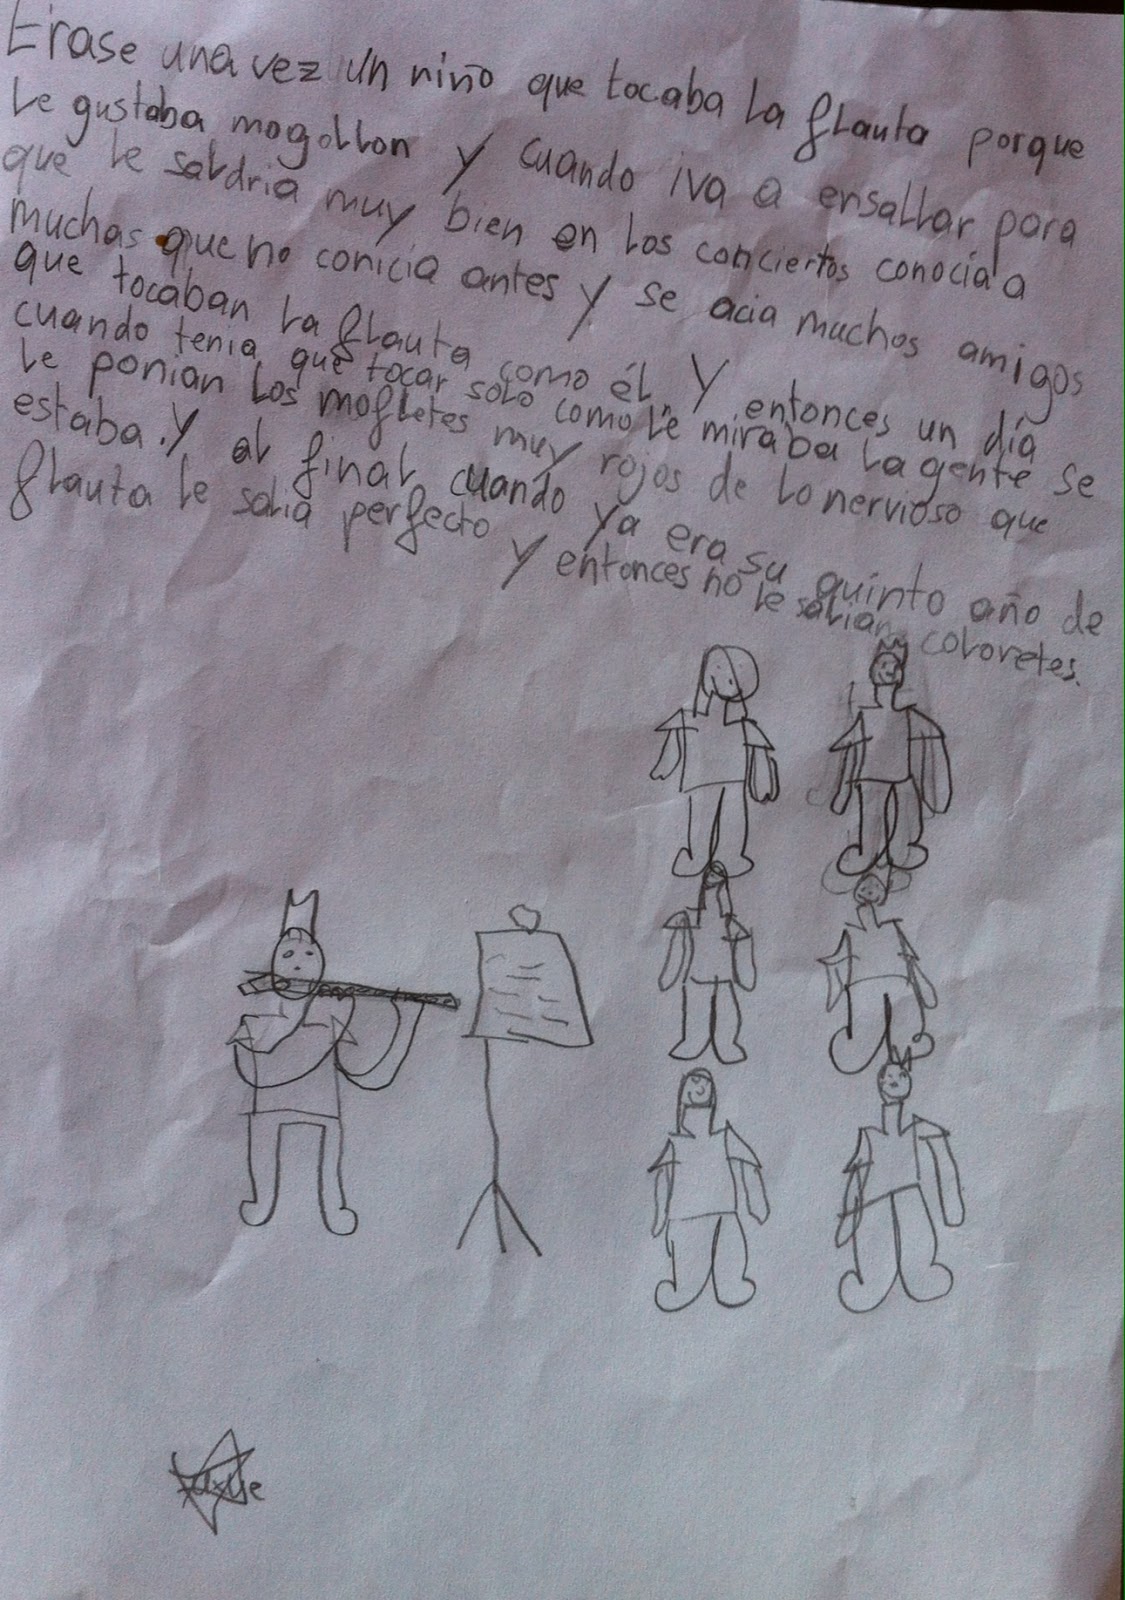 Erase una vez un niño que tocaba la flauta porque
le gustaba mogollon y cuando iva a ensallar para
que le saldria muy bien en los conciertos conocía a
muchas que no conicia antes y se acia muchos amigos
que tocaban la flauta como él. Y entonces un día
cuando tenia que tocar solo como le miraba la gente se
le ponian los mofletes muy rojos de lo nervioso que
estaba. Y al final cuando ya era su quinto año de
flauta le salia perfecto y entonces no le salian coloretes.